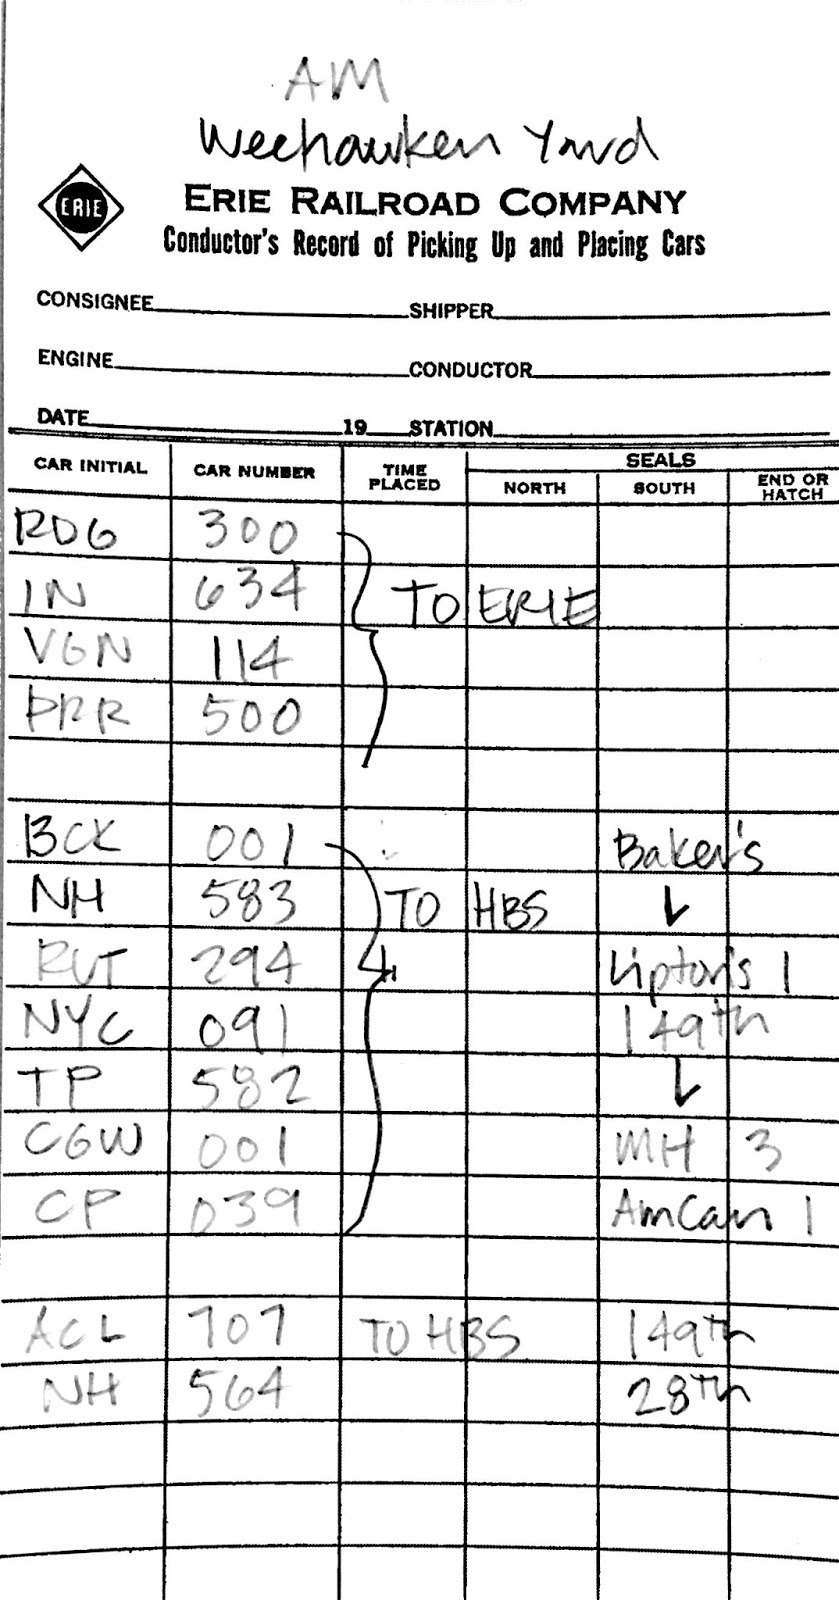 AM
Weehawken Yard
ERIE
ERIE RAILROAD COMPANY
Conductor's Record of Picking Up and Placing Cars
CONSIGNEE SHIPPER
ENGINE CONDUCTOR
DATE 19 STATION
CAR INITIAL CAR NUMBER TIME PLACED SEALS
NORTH SOUTH END OR HATCH
RDG 300
IN 634 TO ERIE
VGN 114
PRR 500
BCK 001 Baker's
NH 583 TO HBS ↓
RUT 294 Lipton's 1
NYC 091 149th
TP 582 ↓
CGW 001 MH 3
CP 039 AmCan 1
ACL 707 TO HBS 149th
NH 564 28th